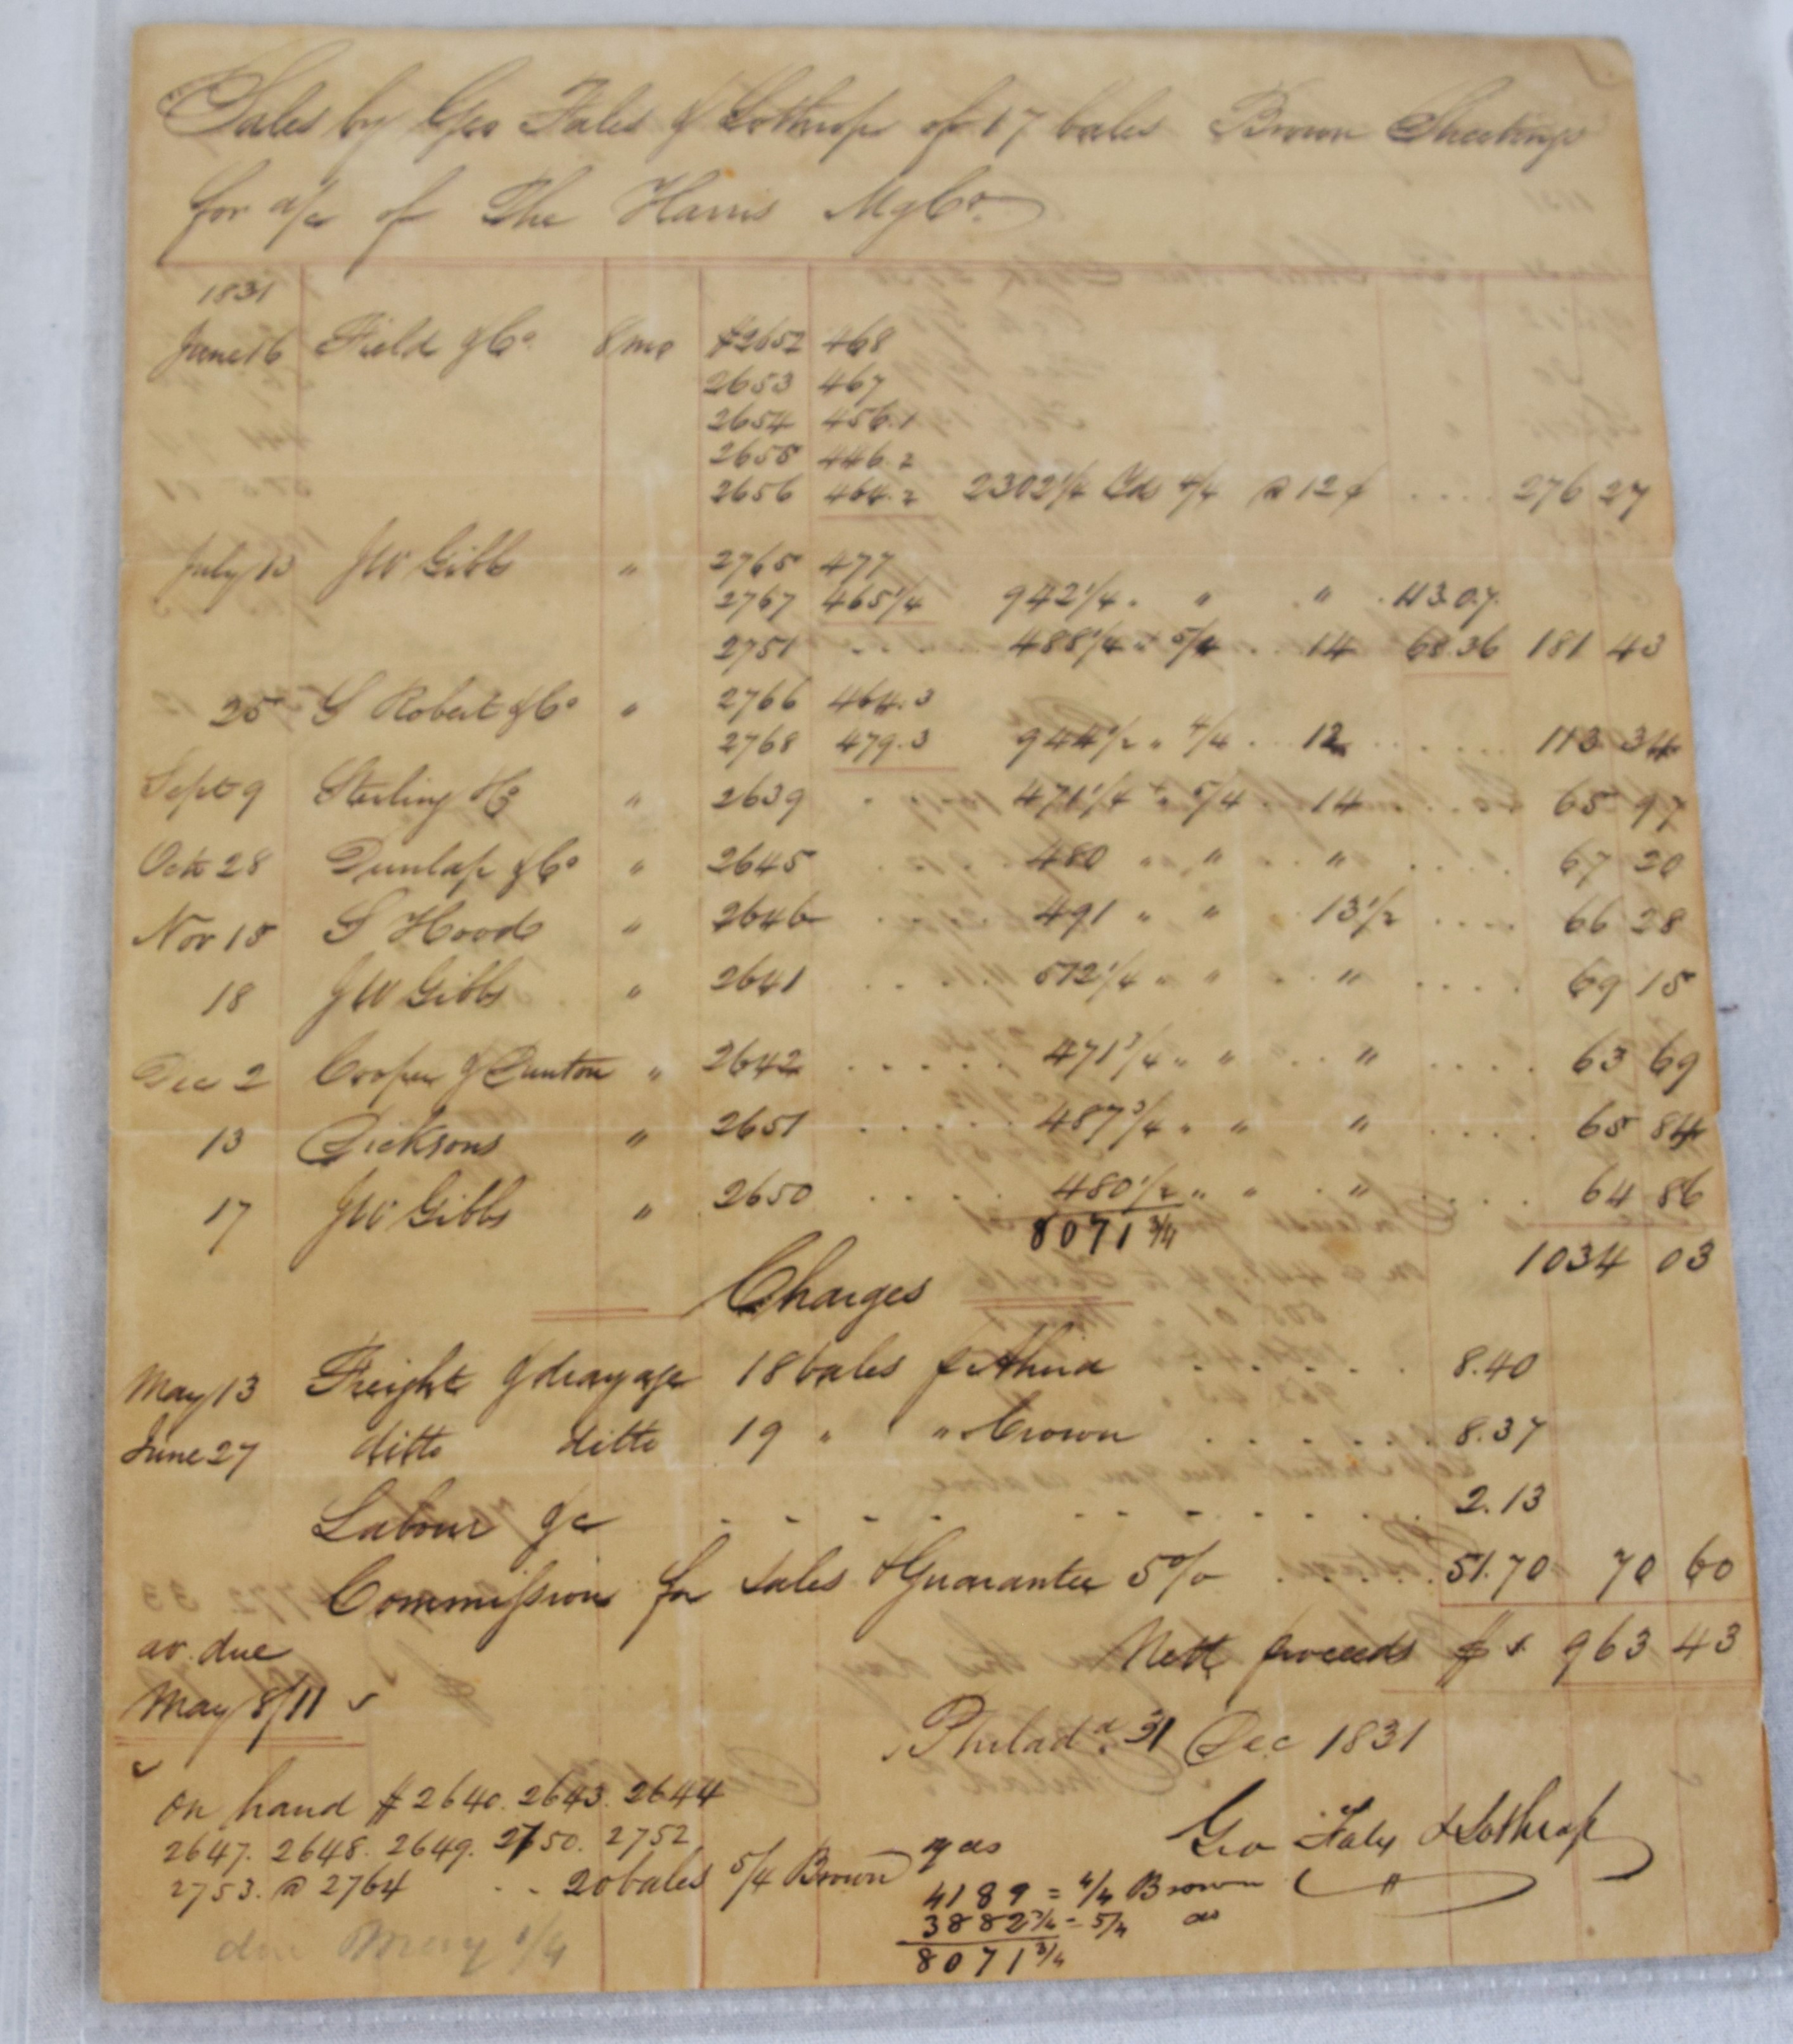 Sales by Geo Fales & Lothrop of 17 bales Brown Sheetings
for a/c of The Harris Mg Co.
1831
June 16 Field & Co. 8 mo #2652 468
2653 467
2654 456.1
2655 446.2
2656 464.2 2302 1/4 Yds 4/4 @ 12 ¢ .... 276 27
July 13 JW Gibbs " 2765 477
2767 465 1/4 942 1/4 . " . " . 113.07
2751 . . . 488 1/4 " 5/4 . . 14 68.36 181 43
25 G Robert & Co " 2766 464.3
2768 479.3 944 1/2 " 4/4 . . 12 . . . . . 113 34
Sept 9 Sterling " 2639 . 471 1/4 " 5/4 . 14 . . . . 65 97
Oct 28 Dunlap & Co " 2645 . . . 480 " " . . " . . . . 67 20
Nov 15 S Hood " 2646 . . . 491 " " . 13 1/2 .... 66 28
18 JW Gibbs " 2641 . . . . 512 1/4 " " . . " . . . . 69 15
Dec 2 Cooper & " 2642 . . . . . 471 3/4 " " . . " . . . . 63 69
13 Dicksons " 2651 . . . . . 487 3/4 " " " . . . . 65 84
17 JW Gibbs " 2650 . . . . . 480 1/2 " " . " . . . . 64 86
8071 3/4 1034 03
Charges
May 13 Freight & drayage 18 bales . . . . . 8.40
June 27 ditto ditto 19 " " Crown . . . . . . 8.37
Labour &c . . . . . . . . . . . 2.13
Commission for Sales & Guarantee 5 % . . . . . 51.70 = 70 60
av. due
Nett proceeds $ 963 43
May 8/11
Philad.a 31 Dec 1831
on hand # 2640. 2643. 2644
Geo Fales & Lothrop
2647. 2648. 2649. 2750. 2752
2753. @ 2764 . . 20 bales 5/4 Brown
yds
4189 = 4/4 Brown
3882 3/4 = 5/4 do
8071 3/4
due May 8/9